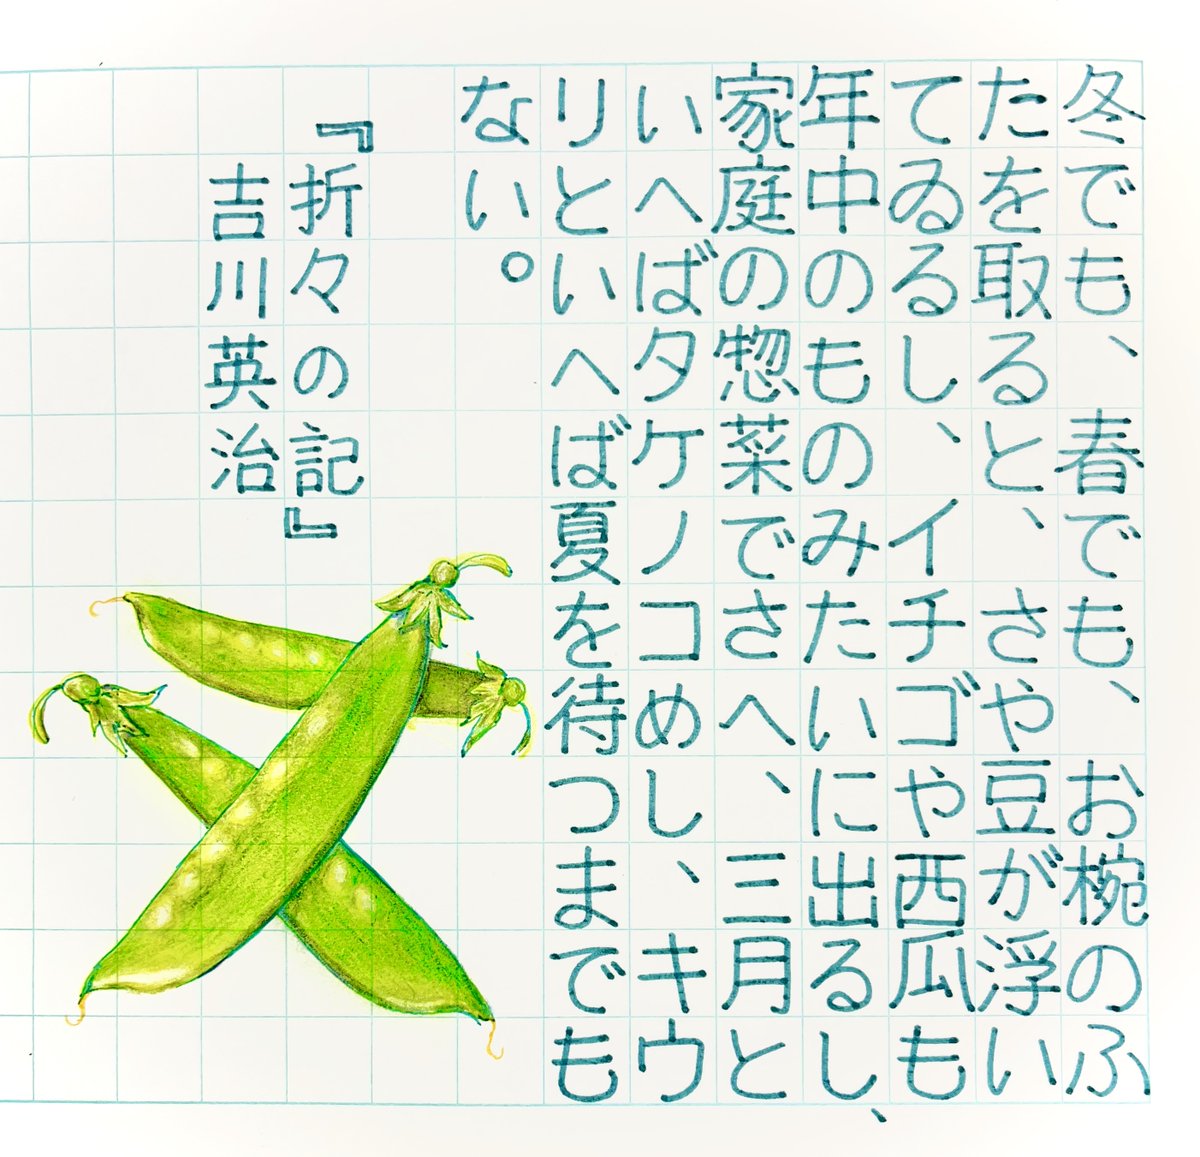 冬でも、春でも、お椀のふ
たを取ると、さや豆が浮い
てゐるし、イチゴや西瓜も
年中のものみたいに出るし、
家庭の惣菜でさへ、三月と
いへばタケノコめし、キウ
リといへば夏を待つまでも
ない。
『折々の記』
吉川英治